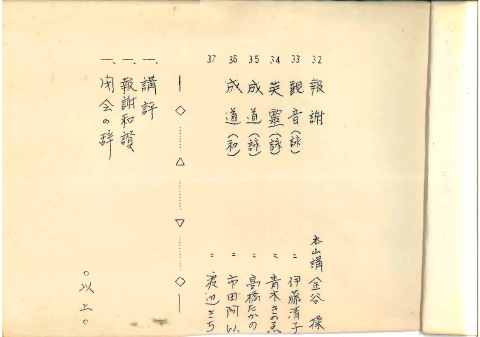 32 報謝 本山講 金谷 操
33 観音(詠) 〃 伊藤清子
34 英霊(詠) 〃 青木きの
35 成道(詠) 〃 高橋たかの
36 成道(和) 〃 市田阿い
37 〃 渡辺きち
一、講評
一、報謝和讃
一、閉会の辞
○以上○